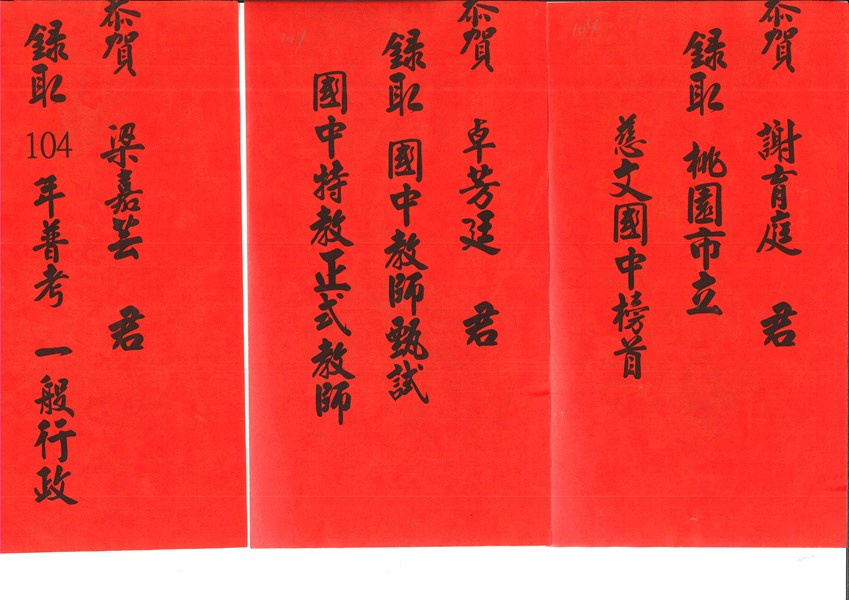 恭賀 謝育庭 君
録取 桃園市立
慈文國中榜首
104
恭賀 卓芳廷 君
録取 國中教師甄試
國中特教正式教師
104
恭賀 梁嘉芸 君
録取 104 年普考 一般行政